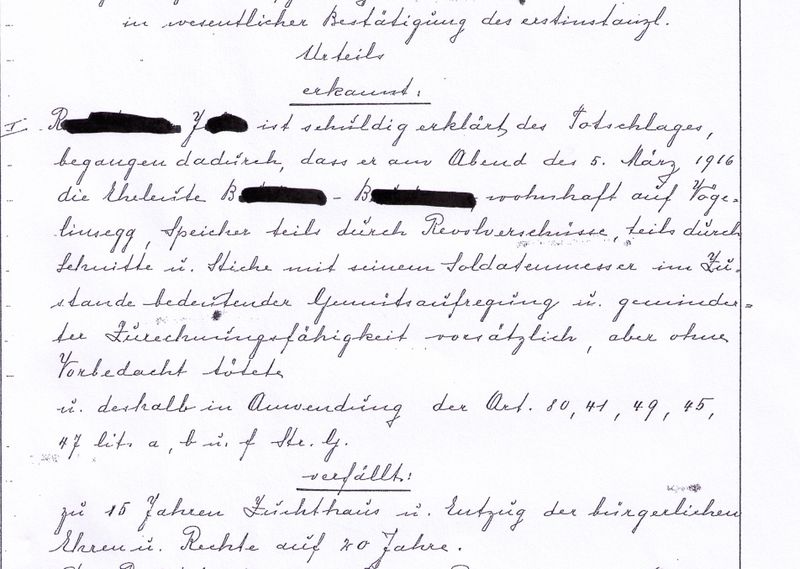 in wesentlicher Bestätigung des erstinstanzl.
Urteils
erkannt:
I. R J ist schuldig erklärt des Totschlages,
begangen dadurch, dass er am Abend des 5. März 1916
die Eheleute B - B, wohnhaft auf Vöge=
linsegg, Speicher teils durch Revolverschüsse, teils durch
Schnitte u. Stiche mit seinem Soldatenmesser im Zu-
stande bedeutender Gemütsaufregung u. geminder=
ter Zurechnungsfähigkeit vorsätzlich, aber ohne
Vorbedacht tötete
u. deshalb in Anwendung der Art. 80, 41, 49, 45,
47 lit. a, b u. f Str. G.
verfällt:
zu 15 Jahren Zuchthaus u. Entzug der bürgerlichen
Ehren u. Rechte auf 20 Jahre.